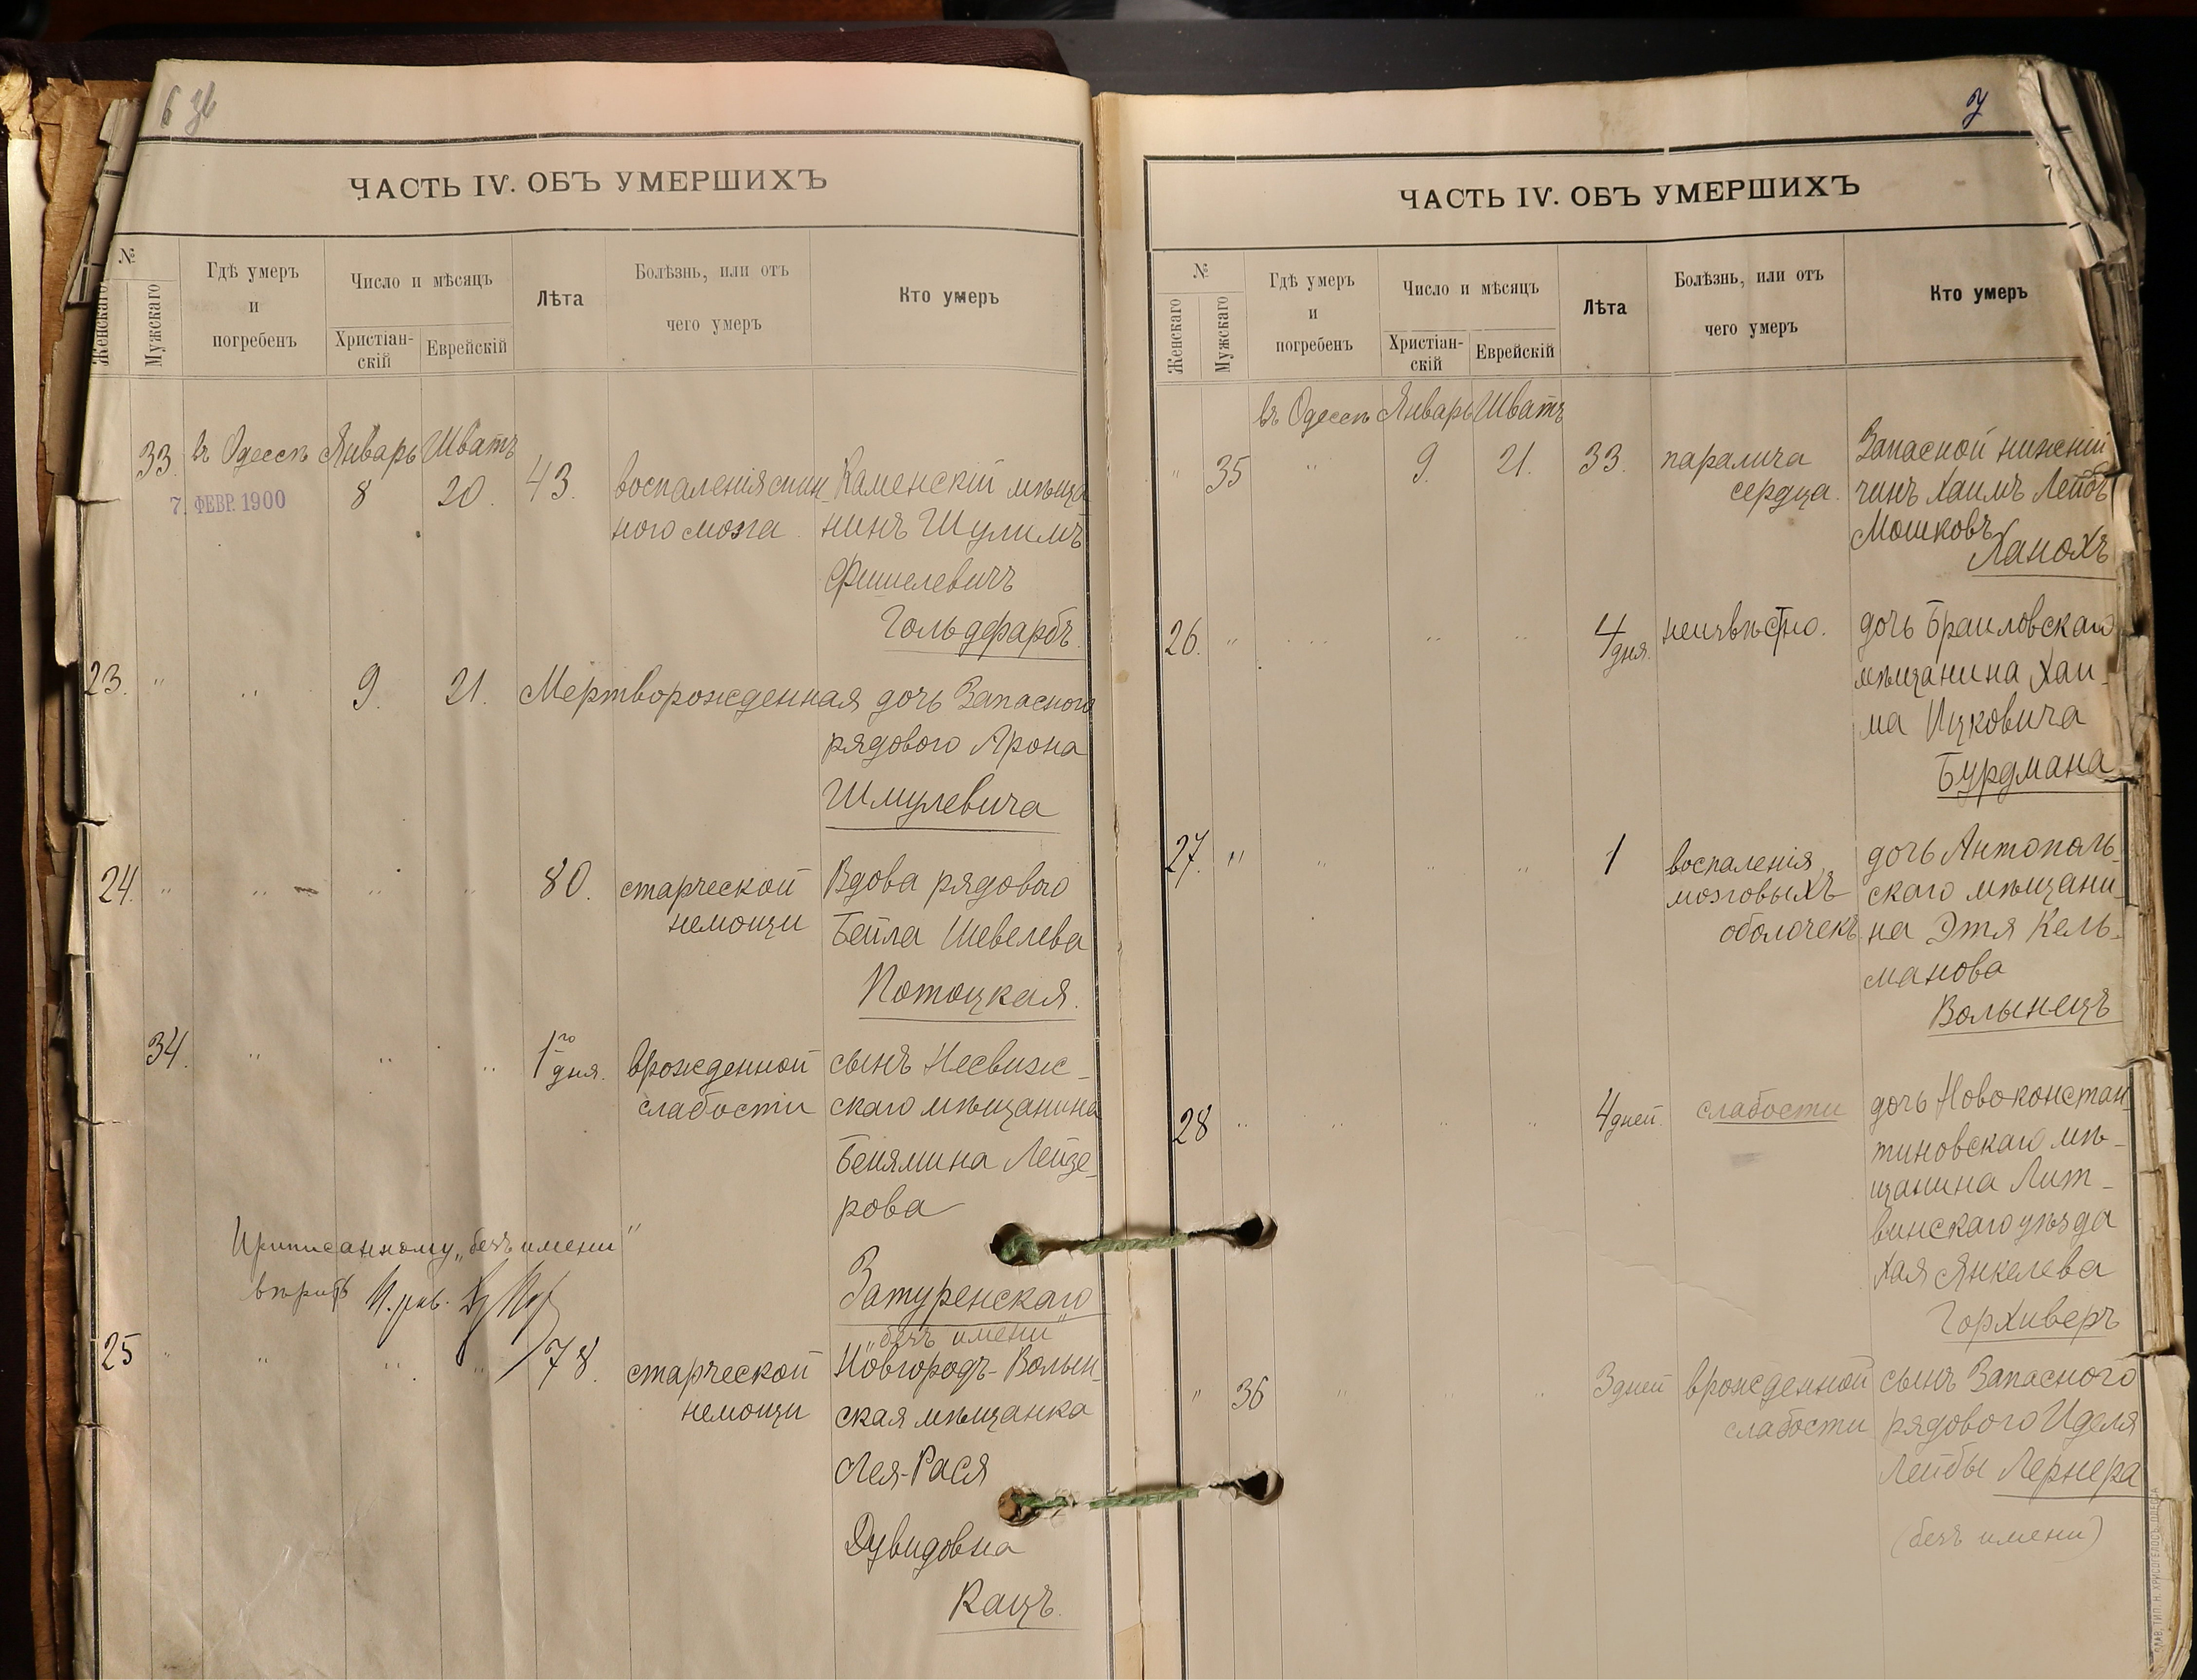 6 зв
ЧАСТЬ IV. ОБЪ УМЕРШИХЪ
№
Женскаго
Мужскаго
Гдѣ умеръ
и
погребенъ
Число и мѣсяцъ
Христіан-
скій
Еврейскій
Лѣта
Болѣзнь, или отъ
чего умеръ
Кто умеръ
33. въ Одессѣ Январь Шватъ
7. ФЕВР. 1900
8 20. 43. воспаленія спин- Каменскій мѣща-
ного мозга. нинъ Шулимъ
Фишелевичъ
Гольдфарбъ.
23. " " 9. 21. Мертворожденная дочь Запасного
рядового Арона
Шмулевича
24. " " " " 80. старческой Вдова рядового
немощи Бейла Шевелева
Потоцкая.
34. " " " 1го дня. врожденной сынъ Несвиж-
слабости скаго мѣщанина
Бенямина Лейзе-
рова
Затуренскаго
"безъ имени"
Приписанному "безъ имени"
вѣрить
25 " " " " 78. старческой Новгородъ-Волын-
немощи ская мѣщанка
Лея-Рася
Дувидовна
Кацъ.
7
ЧАСТЬ IV. ОБЪ УМЕРШИХЪ
№
Женскаго
Мужскаго
Гдѣ умеръ
и
погребенъ
Число и мѣсяцъ
Христіан-
скій
Еврейскій
Лѣта
Болѣзнь, или отъ
чего умеръ
Кто умеръ
въ Одессѣ Январь Шватъ
" 35 " 9. 21. 33. паралича Запасной нижній
сердца. чинъ Хаимъ Лейбъ
Мошковъ
Ханохъ
26. " " " " 4 дня. неизвѣстно. дочь Браиловскаго
мѣщанина Хаи-
ма Ицковича
Бурдмана
27. " " " " 1 воспаленія дочь Антополь-
мозговыхъ скаго мѣщани-
оболочекъ на Этя Кель-
манова
Волынецъ
28 " " " " 4 дней. слабости дочь Новоконстан-
тиновскаго мѣ-
щанина Лит-
винскаго уѣзда
Хая Янкелева
Горхиверъ
" 36 " " " 3 дней врожденной сынъ Запасного
слабости рядового Иделя
Лейбы Лернера
(безъ имени)